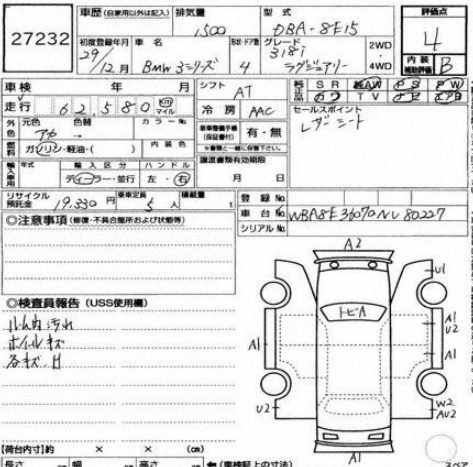 27232
車歴 (自家用以外は記入) 排気量 型式 評価点
1500 DBA-8E15 4
初度登録年月 車名 形状・ドア数 グレード 2WD
29/12月 BMW 3シリーズ 4 318i ラグジュアリー 4WD
内装補助評価 B
車検 年 月 シフト AT 純正品 SR AW PS PW
走行 62,580 km マイル 冷房 AAC カワ TV ナビ エアB
外色 元色 色替 カラーNo. 乗車整備手帳(保証書付) 有・無 セールスポイント
アカ→ ※書類と一緒に保管下さい。 レザーシート
燃料 ガソリン・軽油・( ) 内装色 譲渡書類有効期限
輸入車用 年式 輸入区分 ハンドル 月 日
ディーラー・並行 左・右
リサイクル預託金 19,330円 乗車定員 5人 積載量 t 登録No.
車台No. WBA8E36070NU80227
シリアルNo.
◎注意事項(修復・不具合箇所および状態等)
A2
U1
◎検査員報告(USS使用欄)
ルーム内汚れ トビA A1 U2
ホイルキズ A1 A1
各キズ、H
U2 W2 AU2
A1
【荷台内寸】約 × × (cm)
長さ cm 幅 cm 高さ cm (車検証上の寸法)